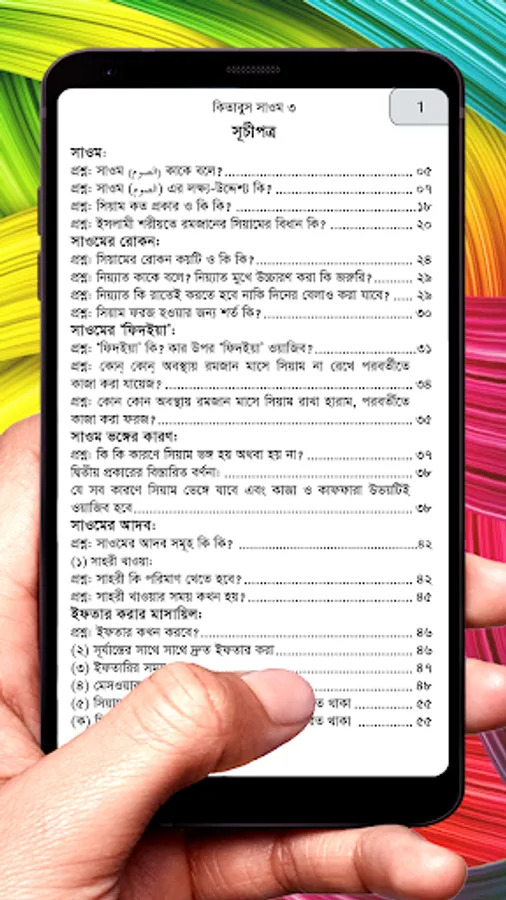 কিতাবুস সাওম ৩
1
সূচীপত্র
সাওম:
প্রশ্ন: সাওম (الصوم) কাকে বলে? ০৫
প্রশ্ন: সাওম (الصوم) এর লক্ষ্য-উদ্দেশ্য কি? ০৭
প্রশ্ন: সিয়াম কত প্রকার ও কি কি? ১৮
প্রশ্ন: ইসলামী শরীয়তে রমজানের সিয়ামের বিধান কি? ২০
সাওমের রোকন:
প্রশ্ন: সিয়ামের রোকন কয়টি ও কি কি? ২৪
প্রশ্ন: নিয়্যাত কাকে বলে? নিয়্যাত মুখে উচ্চারণ করা কি জরুরি? ২৯
প্রশ্ন: নিয়্যাত কি রাতেই করতে হবে নাকি দিনের বেলাও করা যাবে? ২৯
প্রশ্ন: সিয়াম ফরজ হওয়ার জন্য শর্ত কি? ৩০
সাওমের ‘ফিদইয়া’:
প্রশ্ন: ‘ফিদইয়া’ কি? কার উপর ‘ফিদইয়া’ ওয়াজিব? ৩১
প্রশ্ন: কোন্ কোন্ অবস্থায় রমজান মাসে সিয়াম না রেখে পরবর্তীতে
কাজা করা যায়েজ? ৩৪
প্রশ্ন: কোন কোন অবস্থায় রমজান মাসে সিয়াম রাখা হারাম, পরবর্তীতে
কাজা করা ফরজ? ৩৫
সাওম ভঙ্গের কারণ:
প্রশ্ন: কি কি কারণে সিয়াম ভঙ্গ হয় অথবা হয় না? ৩৭
দ্বিতীয় প্রকারের বিস্তারিত বর্ণনা: ৩৮
যে সব কারণে সিয়াম ভেঙ্গে যাবে এবং কাজা ও কাফফারা উভয়টিই
ওয়াজিব হবে ৩৮
সাওমের আদব:
প্রশ্ন: সাওমের আদব সমূহ কি কি? ৪২
(১) সাহরী খাওয়া:
প্রশ্ন: সাহরী কি পরিমাণ খেতে হবে? ৪২
প্রশ্ন: সাহরী খাওয়ার সময় কখন হয়? ৪৫
ইফতার করার মাসায়িল:
প্রশ্ন: ইফতার কখন করবে? ৪৬
(২) সূর্যাস্তের সাথে সাথে দ্রুত ইফতার করা ৪৬
(৩) ইফতারির সময় ৪৭
(৪) মেসওয়াক ৪৮
(৫) থাকা ৫৫
(ক) থাকা ৫৫